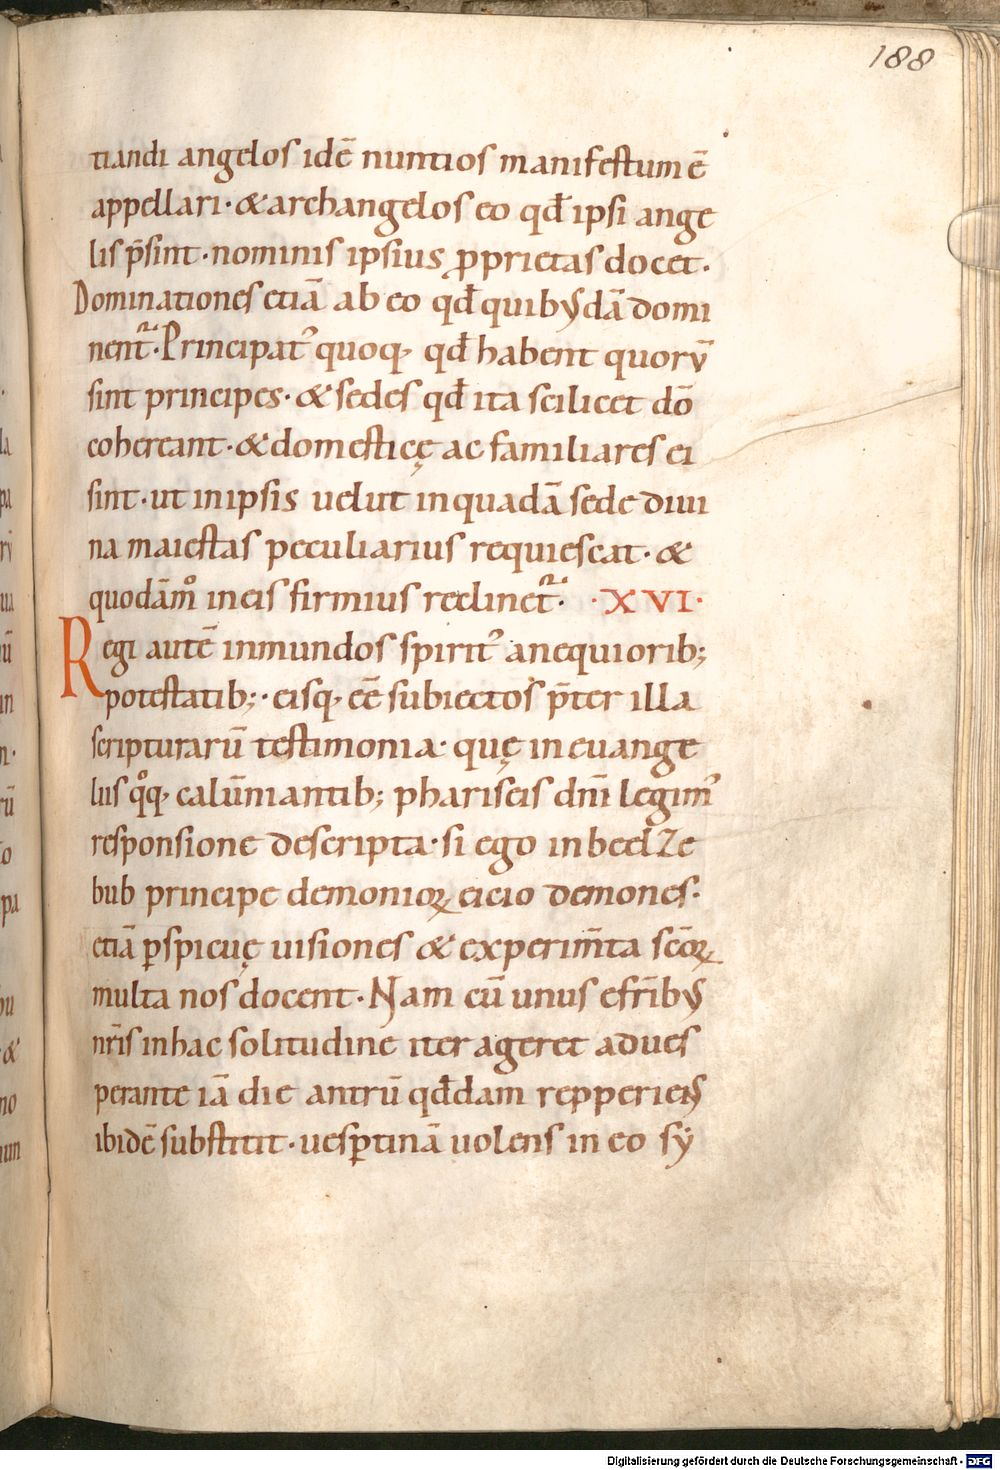 188
tiandi angelos idē nuntios manifestum ē
appellari · & archangelos eo qđ ipsi ange
lis p̄sint · nominis ipsius ꝓprietas docet.
Dominationes etiā ab eo qđ quibꝰdā domi
nent᷑ · Principatꝰ quoq; qđ habent quorū
sint principes · & sedes qđ ita scilicet dō
cohereant · & domesticę ac familiares ei
sint · ut in ipsis uelut in quadā sede diui
na maiestas peculiarius requiescat · &
quodāmͦ in eis firmius reclinet᷑ · · XVI ·
Regi autē inmundos spiritꝰ a nequiorib;
potestatib; · eisq; eē subiectos p̄ter illa
scripturarū testimonia · quę in euange
liis qͦq; calūniantib; phariseis dn̄i legimꝰ
responsione descripta · si ego in beelze
bub principe demonioꝝ eicio demones ·
etiā ꝑspicuę uisiones & experim̄ta sc̄oꝝ
multa nos docent · Nam cū unus e fr̄ibꝰ
nr̄is in hac solitudine iter ageret adues
perante iā die antrū qđdam repperiens
ibidē substitit · uesꝑtinā uolens in eo sy
Digitalisierung gefördert durch die Deutsche Forschungsgemeinschaft - DFG